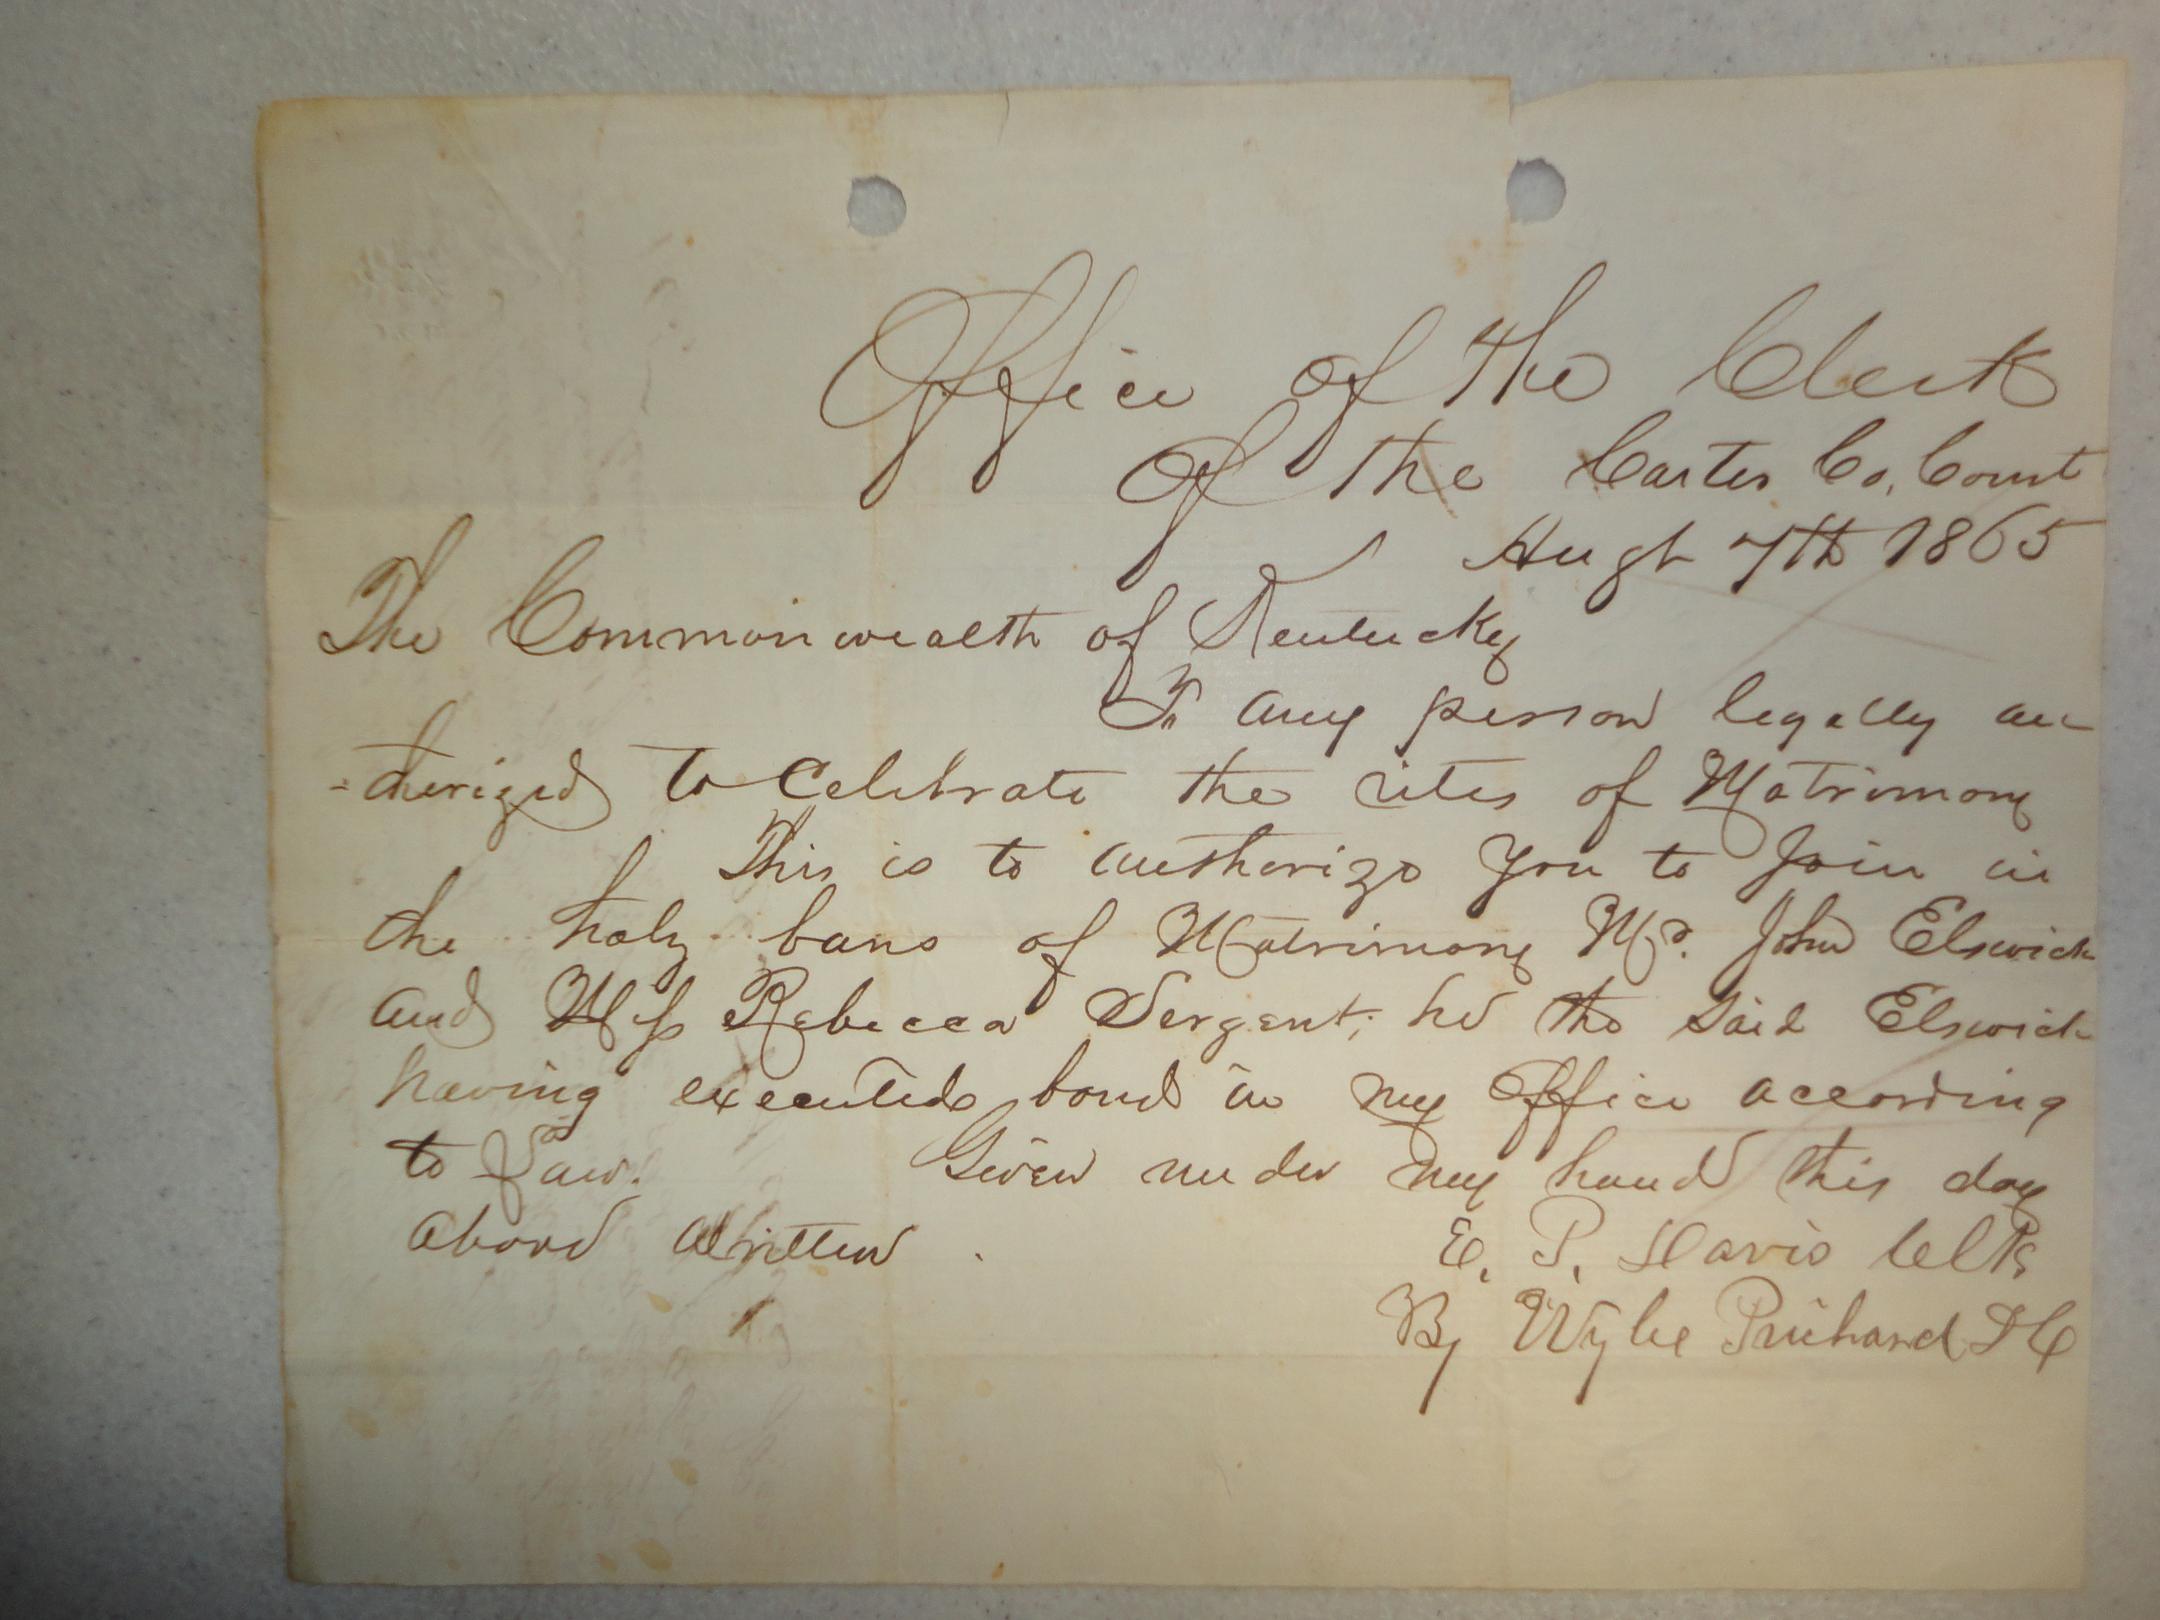 Office of the Clerk
Of the Carter Co, Court
Augt 7th 1865
The Commonwealth of Kentucky
To any person legally au-
-therized to Celebrate the rites of Matrimony
This is to authorize you to Join in
the holy bans of Matrimony Mr. John Elswick
and Miss Rebecca Sergent; he the said Elswick
having executed bond in my Office according
to Law. Given under my hand this day
above written.
E. P. Davis Clk,
By Wylie Prichard DC